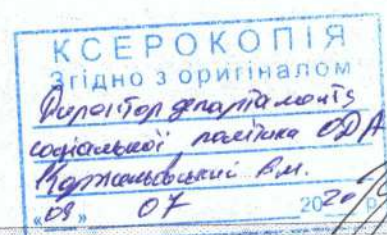 КСЕРОКОПІЯ
Згідно з оригіналом
Директор департаменту
соціальної політики ОДА
В.М.
«09» 07 2020 р